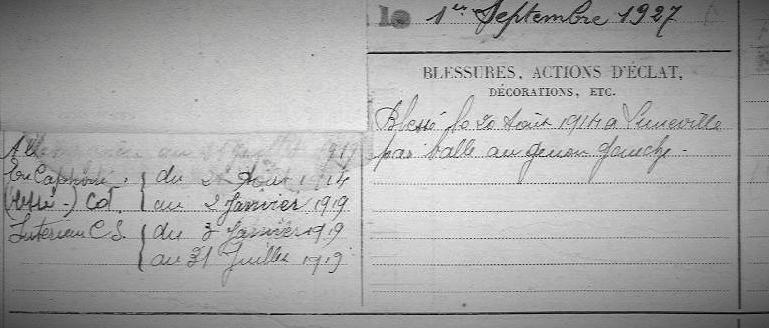 le 1er Septembre 1927
BLESSURES, ACTIONS D'ÉCLAT,
DÉCORATIONS, ETC.
Blessé le 20 Août 1914 a Luneville
par balle au genou gauche.
au Juillet 1919
En Captivité. du 2 Août 1914
(blessé -) Cot. au 2 Janvier 1919
Interieur C.S. du 3 Janvier 1919
au 31 Juillet 1919